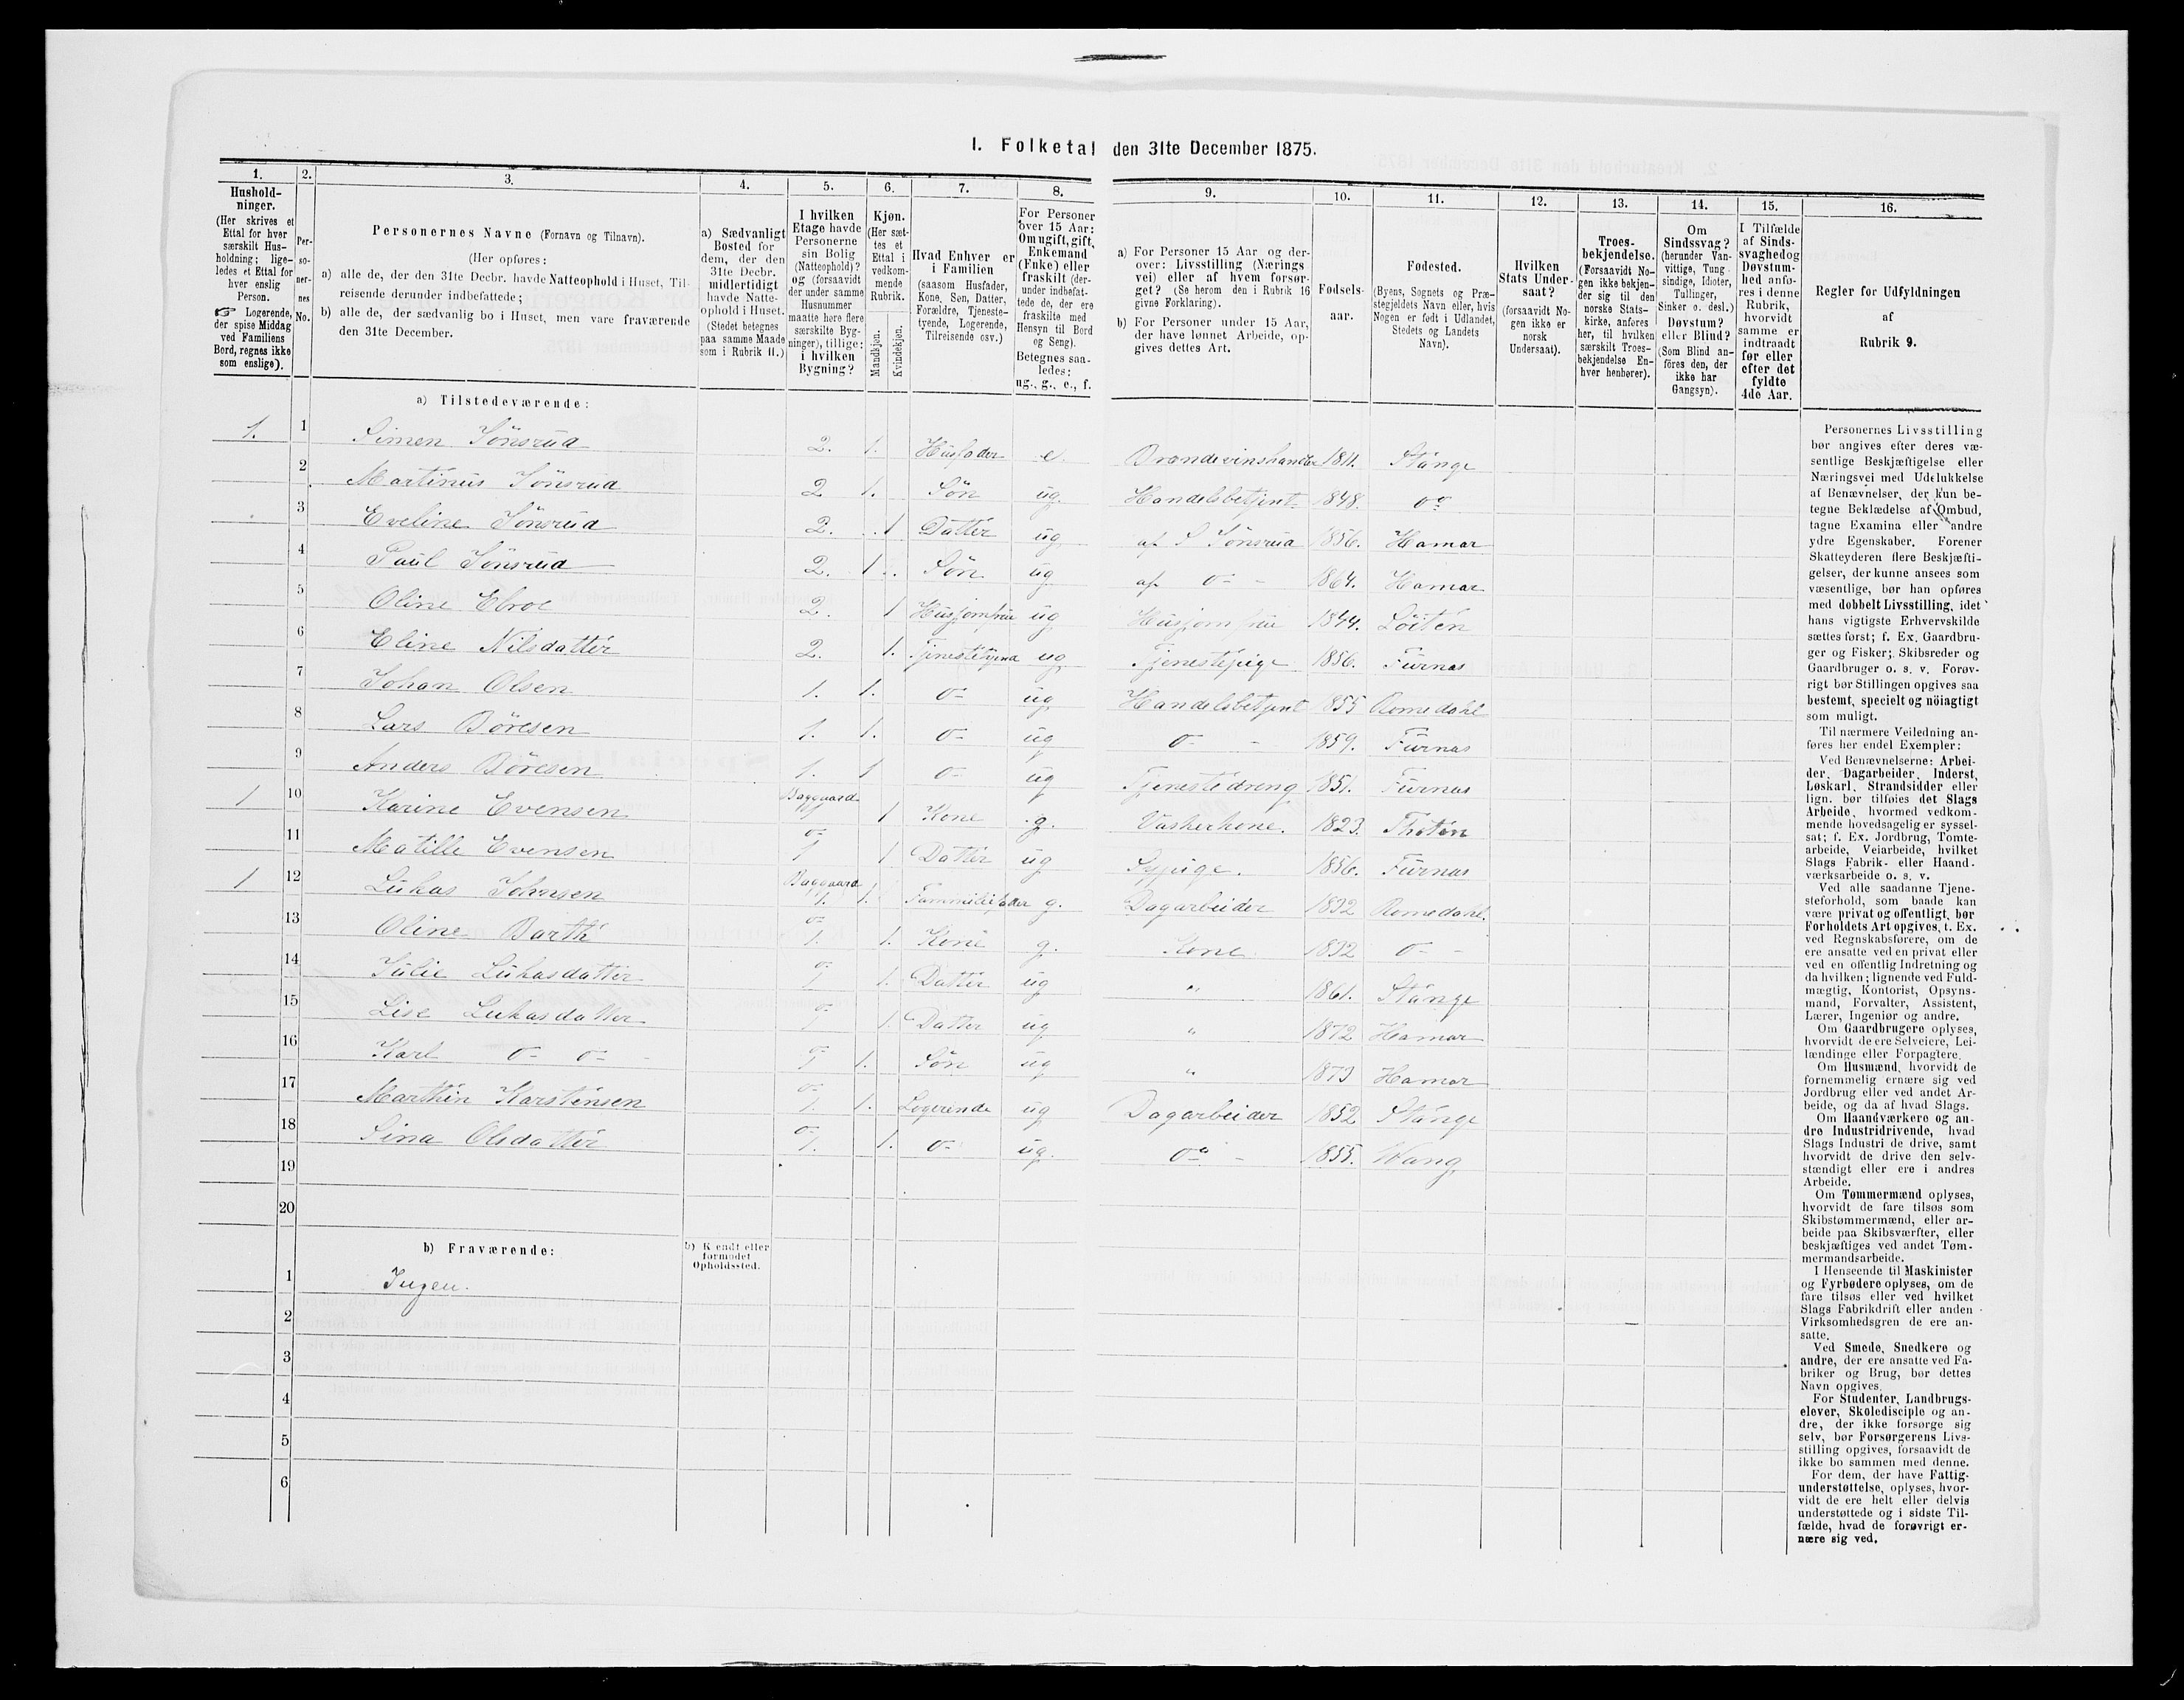 I. Folketal den 31te December 1875.
1. 2. 3. 4. 5. 6. 7. 8. 9. 10. 11. 12. 13. 14. 15. 16.
Hushold-
ninger.
(Her skrives et
Ettal for hver
særskilt Hus-
holdning; lige-
ledes et Ettal for
hver enslig
Person.
☞ Logerende,
der spise Middag
ved Familiens
Bord, regnes ikke
som enslige).
Per-
so-
ner-
nes
No.
Personernes Navne (Fornavn og Tilnavn).
(Her opføres:
a) alle de, der den 31te Decbr. havde Natteophold i Huset, Til-
reisende derunder indbefattede;
b) alle de, der sædvanlig bo i Huset, men vare fraværende
den 31te December.
a) Sædvanligt
Bosted for
dem, der den
31te Decbr.
midlertidigt
havde Natte-
ophold i Huset.
(Stedet betegnes
paa samme Maade
som i Rubrik 11.)
I hvilken
Etage havde
Personerne
sin Bolig
(Natteophold)?
og (forsaavidt
der under samme
Husnummer
maatte høre flere
særskilte Byg-
ninger), tillige:
i hvilken
Bygning?
Kjøn.
(Her sæt-
tes et
Ettal i
vedkom-
mende
Rubrik.
Mandkjøn.
Kvindekjøn.
Hvad Enhver er
i Familien
(saasom Husfader,
Kone, Søn, Datter,
Forældre, Tjeneste-
tyende, Logerende,
Tilreisende osv.)
For Personer
over 15 Aar:
Om ugift, gift,
Enkemand
(Enke) eller
fraskilt (der-
under indbefat-
tede de, der ere
fraskilte med
Hensyn til Bord
og Seng).
Betegnes saa-
ledes:
ug., g., e., f.
a) For Personer 15 Aar og der-
over: Livsstilling (Nærings
vei) eller af hvem forsør-
get? (Se herom den i Rubrik 16
givne Forklaring).
b) For Personer under 15 Aar,
der have lønnet Arbeide, op-
gives dettes Art.
Fødsels-
aar.
Fødested.
(Byens, Sognets og Præ-
stegjeldets Navn eller, hvis
Nogen er født i Udlandet,
Stedets og Landets
Navn).
Hvilken
Stats Under-
saat?
(forsaavidt No-
gen ikke er
norsk
Undersaat).
Troes-
bekjendelse.
(Forsaavidt No-
gen ikke bekjen-
der sig til den
norske Stats-
kirke, anføres
her, til hvilken
særskilt Troes-
bekjendelse En-
hver henhører).
Om
Sindssvag?
(herunder Van-
vittige, Tung-
sindige, Idioter,
Tullinger,
Sinker o. desl.)
Døvstum?
eller Blind?
(Som Blind an-
føres den, der
ikke har
Gangsyn).
I Tilfælde
af Sinds-
svaghed og
Døvstum-
hed anfø-
res i denne
Rubrik,
hvorvidt
samme er
indtraadt
før eller
efter det
fyldte
4de Aar.
Regler for Udfyldningen
af
Rubrik 9.
a) Tilstedeværende:
1. 1 Simen Sönsrud 2. 1. Husfader e. Brændevinshandler 1811. Stange
2 Martinus Sönsrud 2 1. Søn ug. Handelsbetjent 1848. do
3 Eveline Sönsrud 2. 1 Datter ug af S Sönsrud 1856. Hamar
4 Paul Sönsrud 2. 1 Søn ug af do 1864. Hamar
5 Oline Ebroe 2. 1 Husjomfru ug Husjomfru 1844. Löiten
6 Eline Nilsdatter 2. 1. ug Tjenestepige 1856. Furnas
7 Johan Olsen 1. 1. do ug Handelsbetjent 1855 Romedahl
8 Lars Böresen 1. 1. do ug do 1859. Furnas
9 Anders Böresen 1. 1 do ug Tjenestedreng 1851. Furnas
1 10 Karine Evensen Baggaard 1 1 Kone g. Vaskerkone. 1823. Thoten
11 Matille Evensen do 1 1 Datter ug Sypige. 1856. Furnas
1 12 Lukas Johnsen Baggaard 1. 1. Fammiliefader g. Dagarbeider 1832 Romedahl.
13 Oline Barth do 1. 1. Kone g. Kone 1832 do
14 Julie Lukasdatter do 1 1. Datter ug " 1861. Stange
15 Lise Lukasdatter do 1 1. Datter ug " 1872 Hamar
16 Karl do do do 1 1. Søn ug " 1873 Hamar
17 Marthin Karstensen do 1. 1. Logerende ug Dagarbeider 1852 Stange
18 Sina Olsdatter do 1. 1. do ug. do 1855. Wang
19
20
b) Fraværende:
b) Kjendt eller
formodet
Opholdssted.
1 Ingen.
2
3
4
5
6
Personernes Livsstilling
bør angives efter deres væ-
sentlige Beskjæftigelse eller
Næringsvei med Udelukkelse
af Benævnelser, der kun be-
tegne Beklædelse af Ombud,
tagne Examina eller andre
ydre Egenskaber. Forener
Skatteyderen flere Beskjæfti-
gelser, der kunne ansees som
væsentlige, bør han opføres
med dobbelt Livsstilling, idet
hans vigtigste Erhvervskilde
sættes først; f. Ex. Gaardbru-
ger og Fisker; Skibsreder og
Gaardbruger o. s. v. Forøv-
rigt bør Stillingen opgives saa
bestemt, specielt og nöiagtigt
som muligt.
Til nærmere Veiledning an-
føres her endel Exempler:
Ved Benævnelserne: Arbei-
der, Dagarbeider, Inderst,
Løskarl, Strandsidder eller
lign. bør tilføies det Slags
Arbeide, hvormed vedkom-
mende hovedsagelig er syssel-
sat; f. Ex. Jordbrug, Tomte-
arbeide, Veiarbeide, hvilket
Slags Fabrik- eller Haand-
værksarbeide o. s. v.
Ved alle saadanne Tjene-
steforhold, som baade kan
være privat og offentligt, bør
Forholdets Art opgives, t. Ex.
ved Regnskabsførere, om de
ere ansatte ved en privat eller
ved en offentlig Indretning og
da hvilken; lignende ved Fuld-
mægtig, Kontorist, Opsyns-
mand, Forvalter, Assistent,
Lærer, Ingeniør og andre.
Om Gaardbrugere oplyses,
hvorvidt de ere Selveiere, Lei-
lændinge eller Forpagtere.
Om Husmænd, hvorvidt de
fornemmelig ernære sig ved
Jordbrug eller ved andet Ar-
beide, og da af hvad Slags.
Om Haandværkere og an-
dre Industridrivende, hvad
Slags Industri de drive, samt
hvorvidt de drive den selv-
stændigt eller ere i andres
Arbeide.
Om Tømmermænd oplyses,
hvorvidt de fare tilsøs som
Skibstømmermænd, eller ar-
beide paa Skibsværfter, eller
beskjæftiges ved andet Tøm-
mermandsarbeide.
I Henseende til Maskinister
og Fyrbødere oplyses, om de
fare tilsøs eller ved hvilket
Slags Fabrikdrift eller anden
Virksomhedsgren de ere an-
satte.
Ved Smede, Snedkere og
andre, der ere ansatte ved Fa-
briker og Brug, bør dettes
Navn opgives.
For Studenter, Landbrugs-
elever, Skoledisciple og an-
dre, der ikke forsørge sig
selv, bør Forsørgerens Livs-
stilling opgives, forsaavidt de
ikke bo sammen med denne.
For dem, der have Fattig-
understøttelse, oplyses, hvor-
vidt de ere helt eller delvis
understøttede og i sidste Til-
fælde, hvad de forøvrigt er-
nære sig ved.